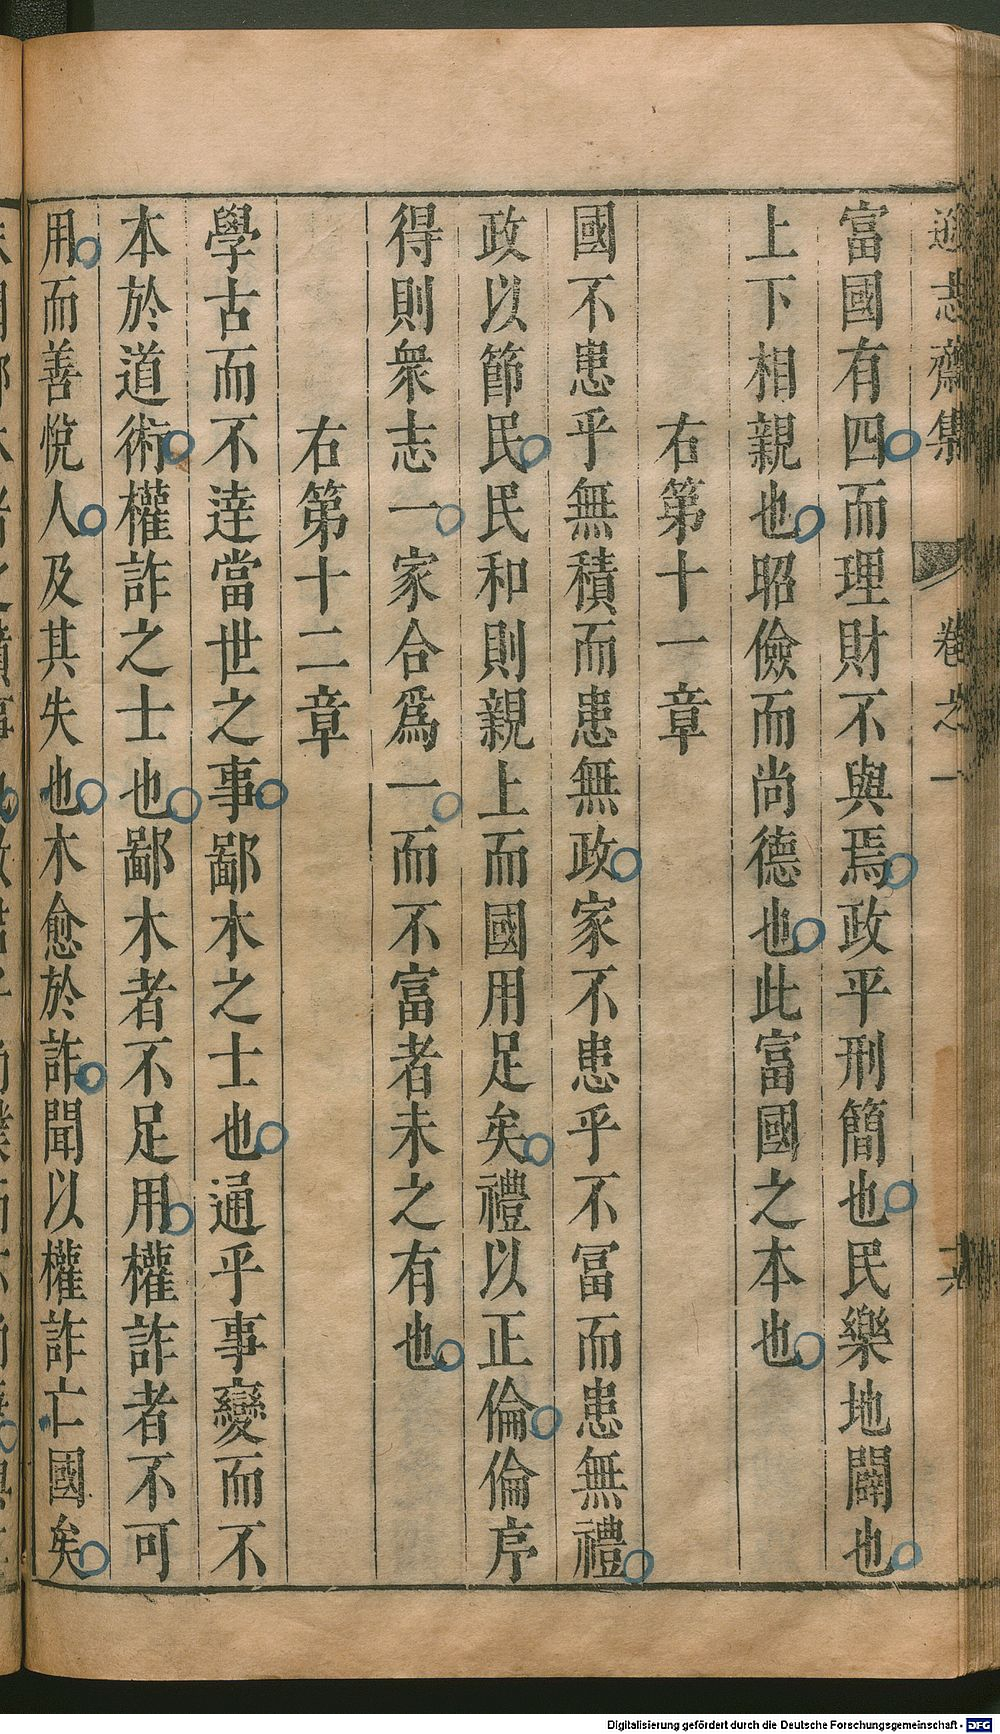 遜志齋集 卷之一
富國有四而理財不與焉政平刑簡也民樂地闢也
上下相親也昭儉而尚德也此富國之本也
右第十一章
國不患乎無積而患無政家不患乎不冨而患無禮
政以節民民和則親上而國用足矣禮以正倫倫序
得則衆志一家合爲一而不富者未之有也
右第十二章
學古而不逹當世之事鄙木之士也通乎事變而不
本於道術權詐之士也鄙木者不足用權詐者不可
用而善悅人及其失也木愈於詐聞以權詐亡國矣
Digitalisierung gefördert durch die Deutsche Forschungsgemeinschaft - DFG